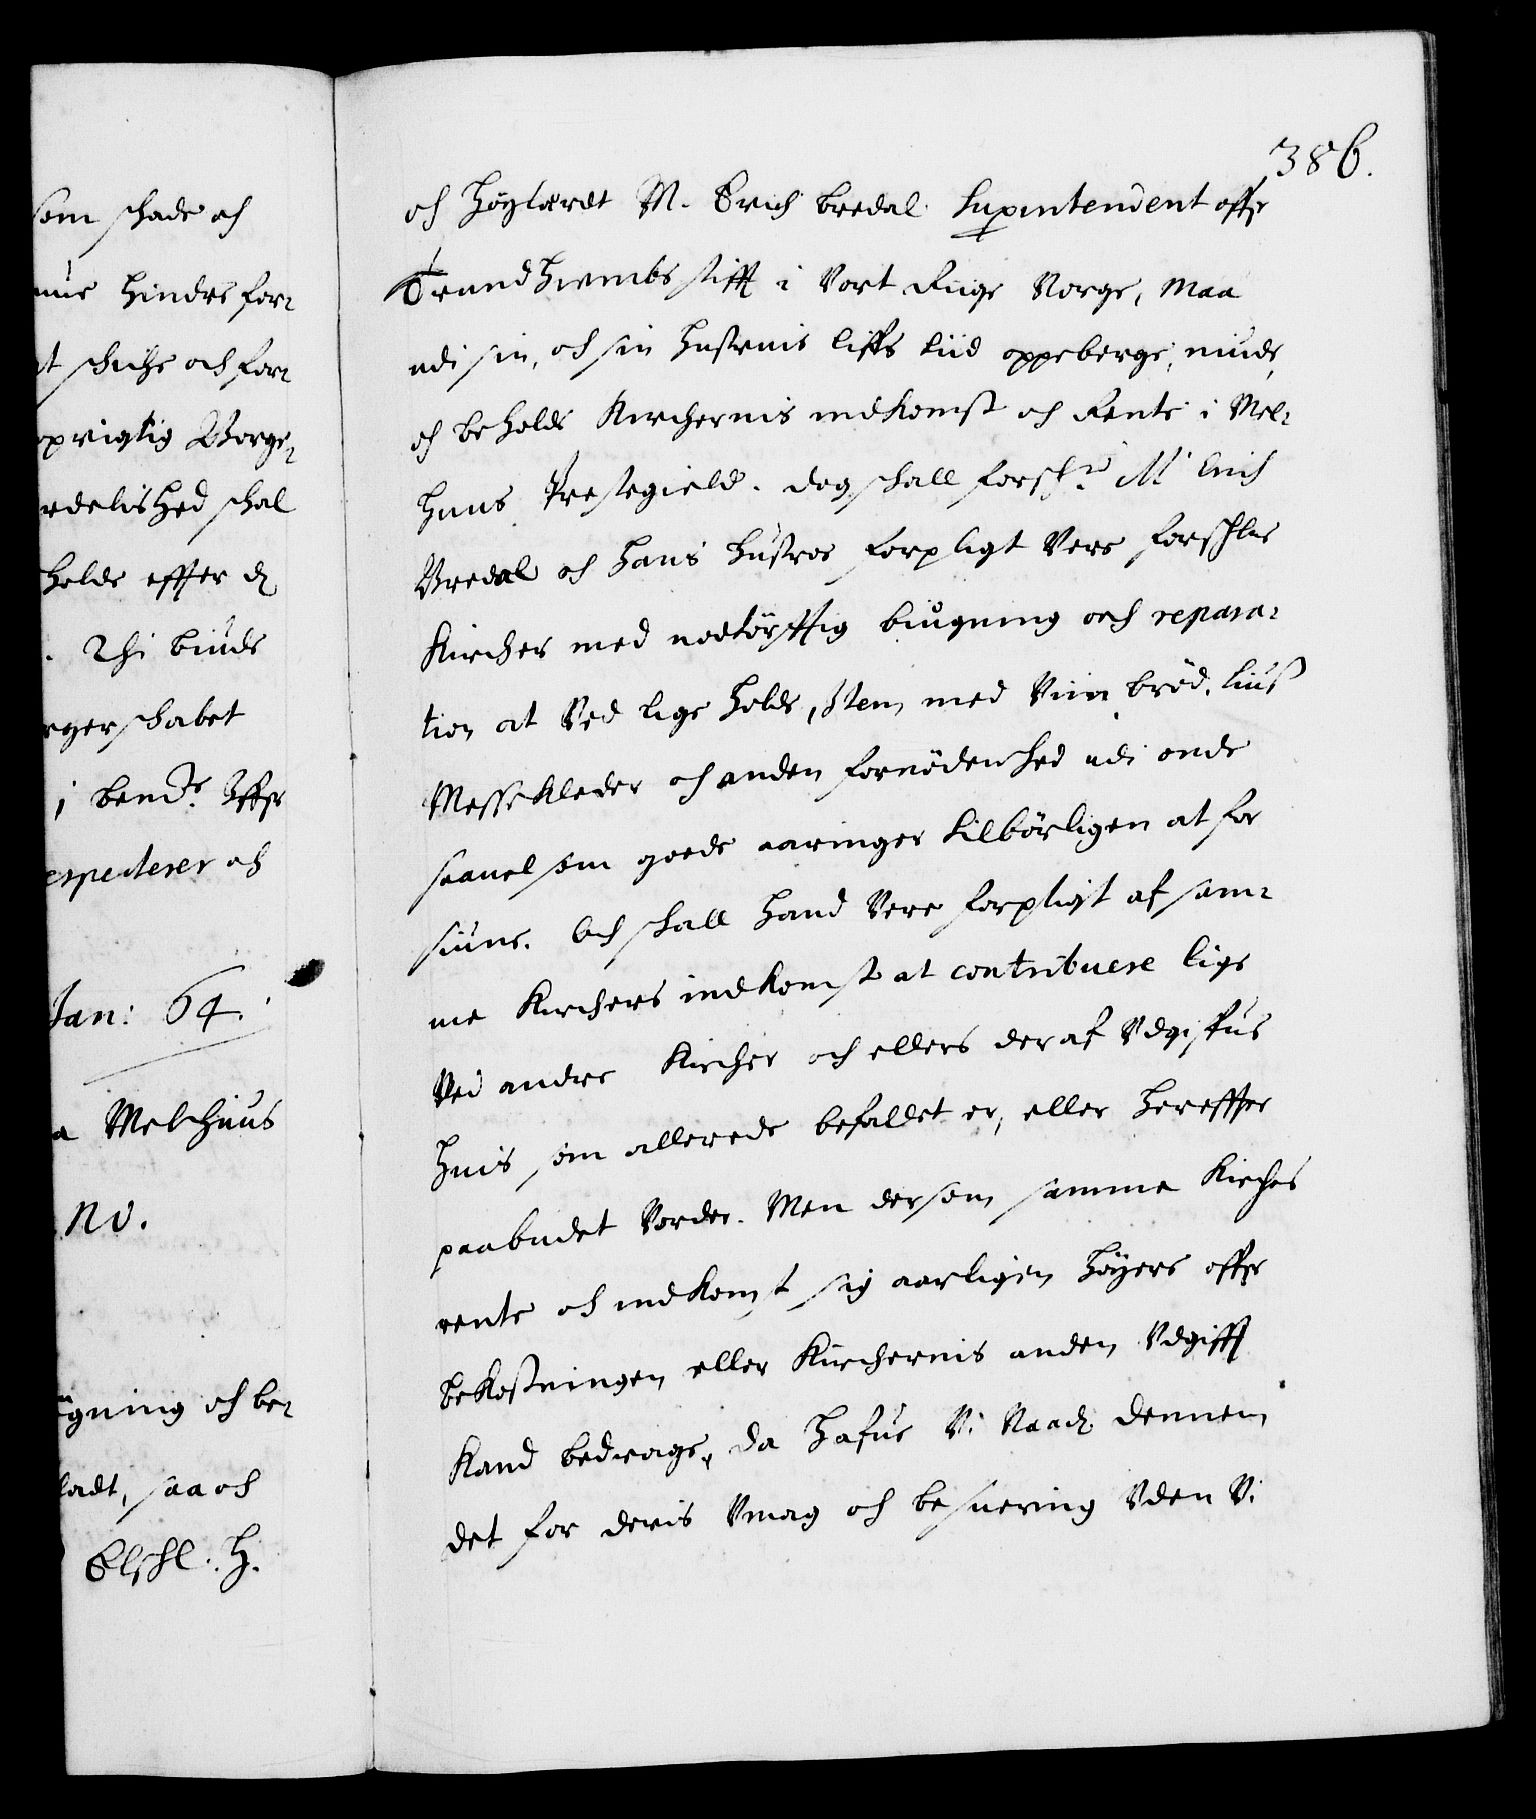 som schade och
nue hindre for¬
at schiche och for¬
oprigtig Borge¬
erdelished schal
holde effter d
. Thi biude
rgerschabet
i bemte. Offr
especterer och
Jan: 64.
a Melhuus
no.
ÿgning och be¬
ladt, saa och
Elschl. H.
386.
och Høylærdt M. Erich bredal Superintendent offr
Trundhiembs stifft i Vort Riige Norge, maa
udi sin, och sin hustruis liffs tiid oppeberge, niude,
och beholde Kirchernis indkomst och Rente i Mel¬
huus Prestegield. dog schall forschne M Erich
Bredal och hans hustroe forpligt Vere forschne
Kircher med nodtörfftig biugning och repara¬
tion at Ved lige holde, Item med Viin brød. liuß
Messeklæder och anden fornödenhed udi onde
saauel som goede aaringer tilbörligen at for
siune. Och schall hand Vere forpligt af sam¬
me Kirchers indkomst at contribuere lige
Ved andre Kircher och ellers der af Udgifue
huis, som allerede befallet er, eller hereffter
paabudet Vorder. Men dersom samme Kirches
rente och indkomst sig aarligen höyere offr
bekostningen eller Kirchernis anden Udgifft
Kand bedrage, da hafue Vi Naadl dennem
det for deris Umag och besuering Uden Vi